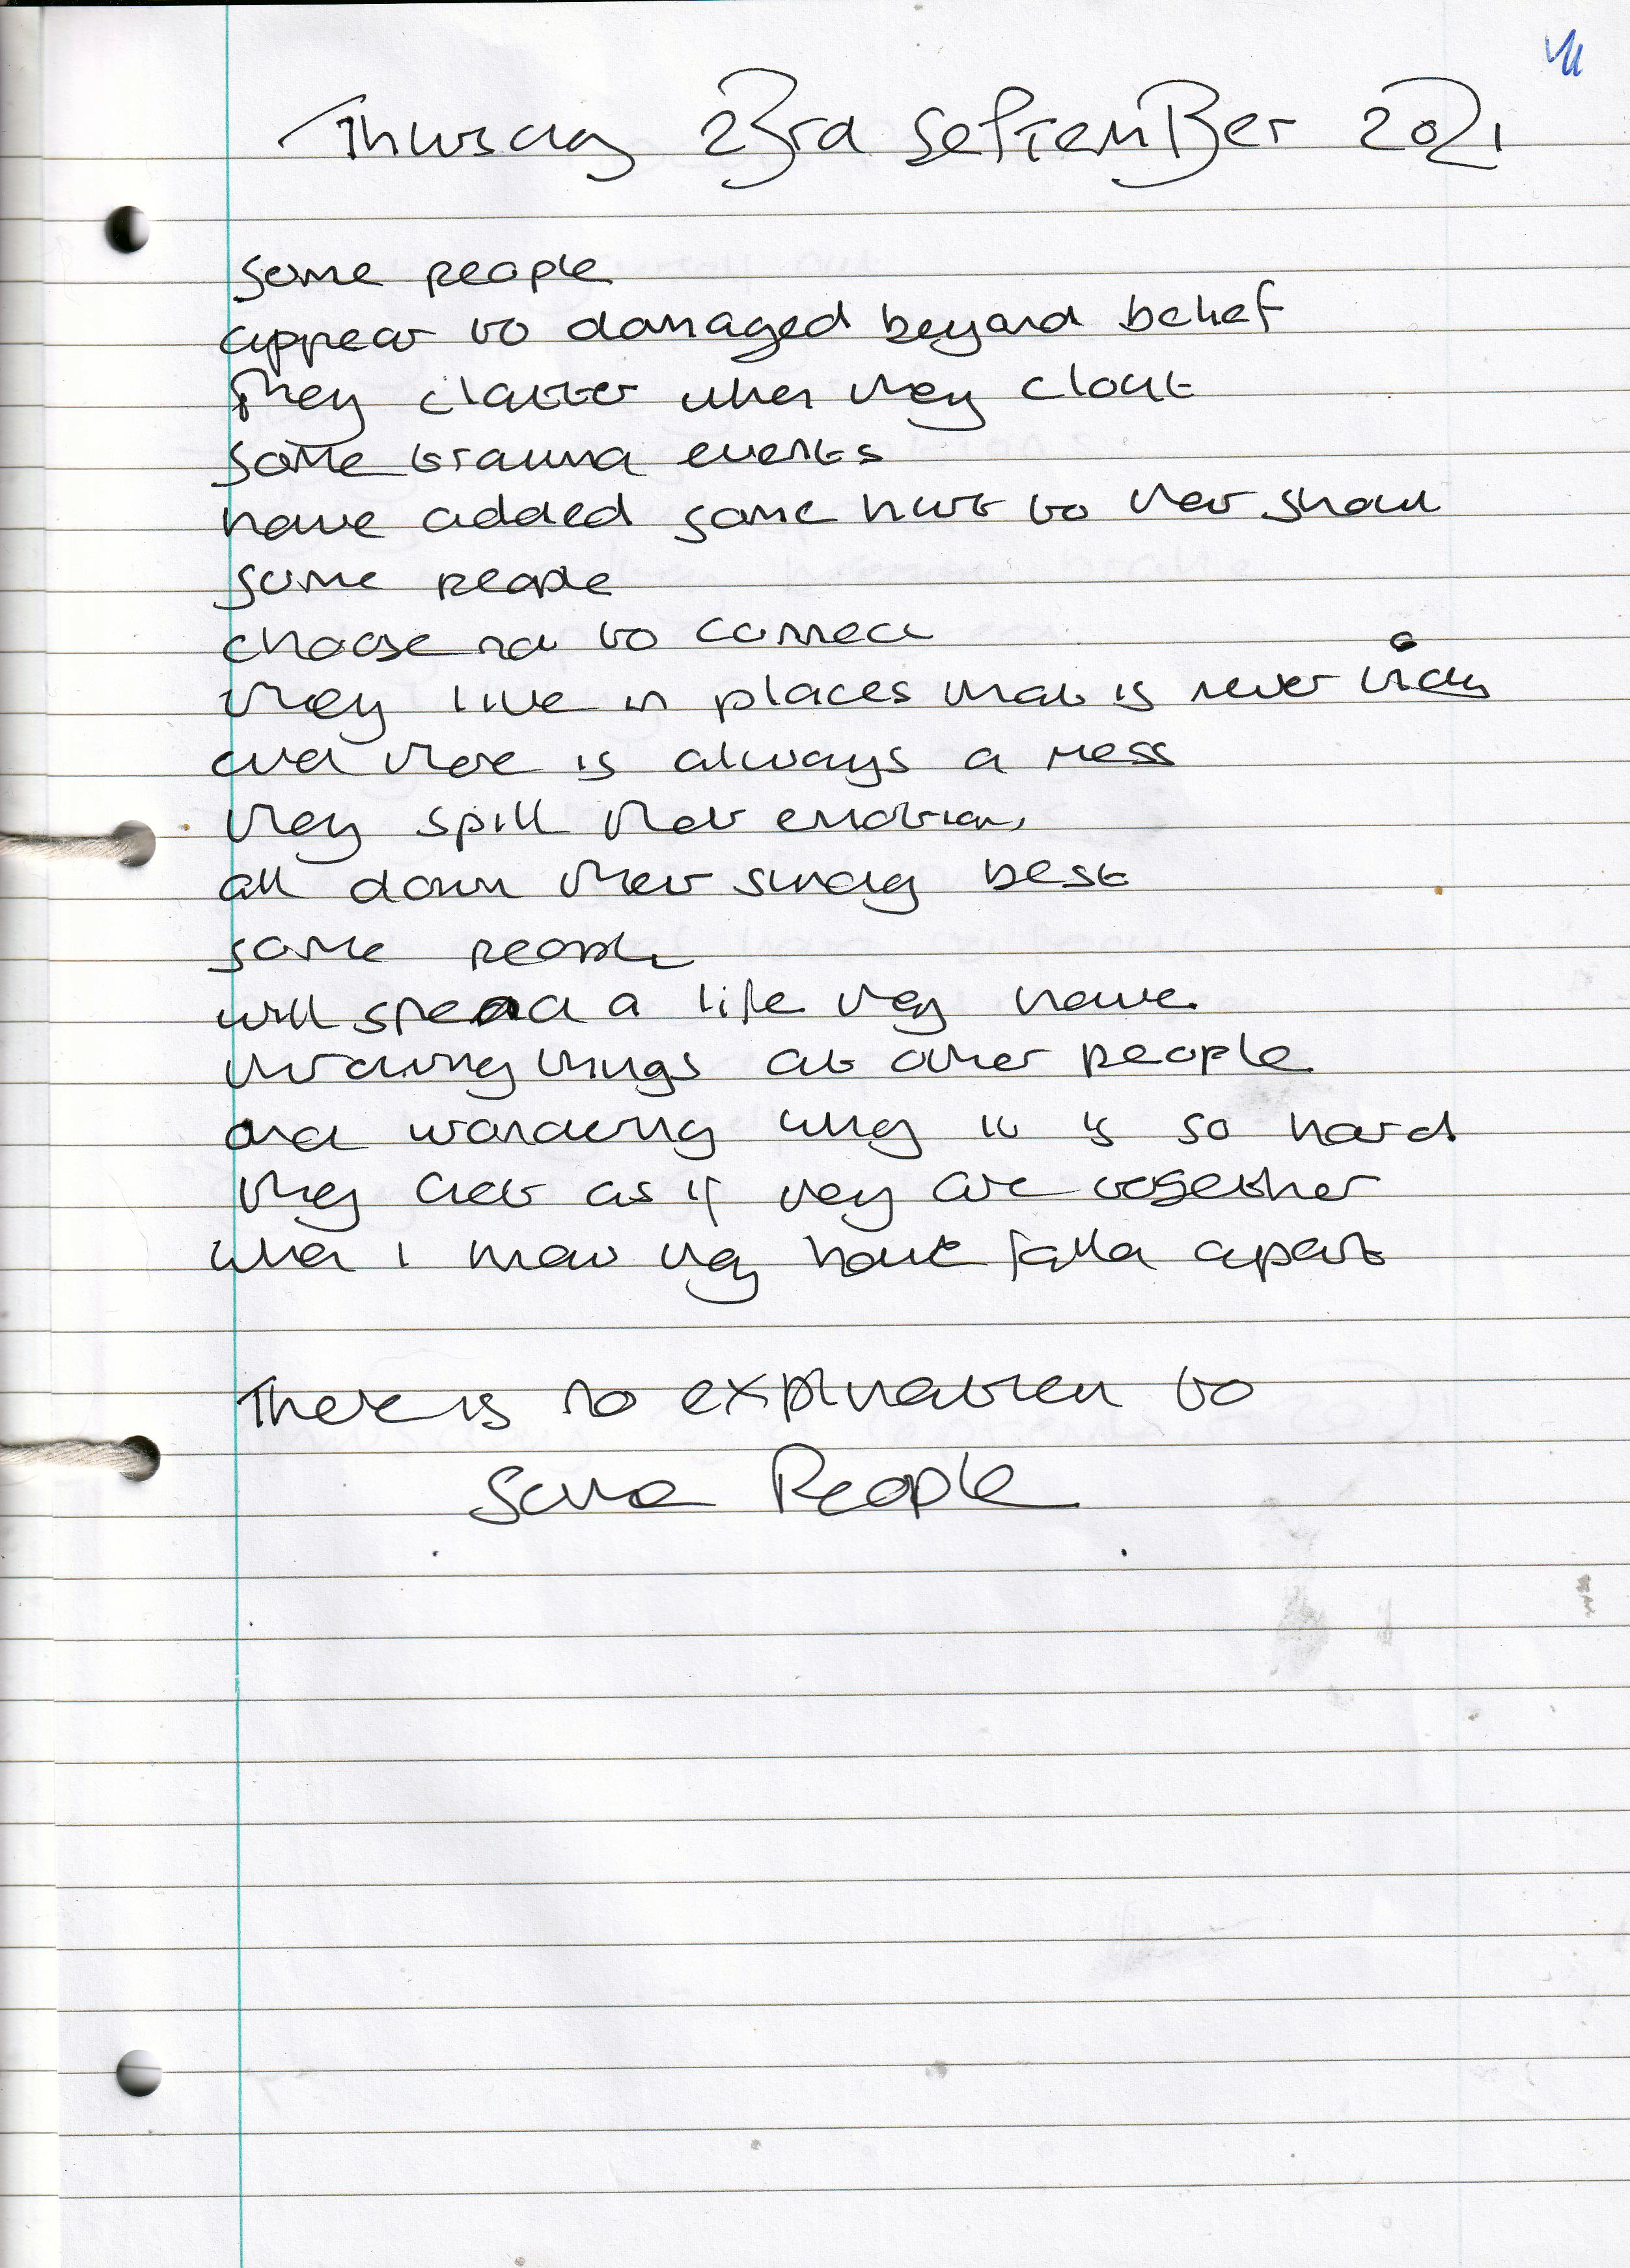 Thursday 23rd September 2021
some people
appear to damaged beyond belief
They clatter when they
some trauma events
have added some hurt to their
some people
choose not to connect
they live in places that is never tidy
and there is always a mess
they spill their emotions
all down their sunday best
some people
will spend a life they have
throwing things at other people
and wondering why it is so hard
they act as if they are together
when i know they have fallen apart
There is no explination to
Some People